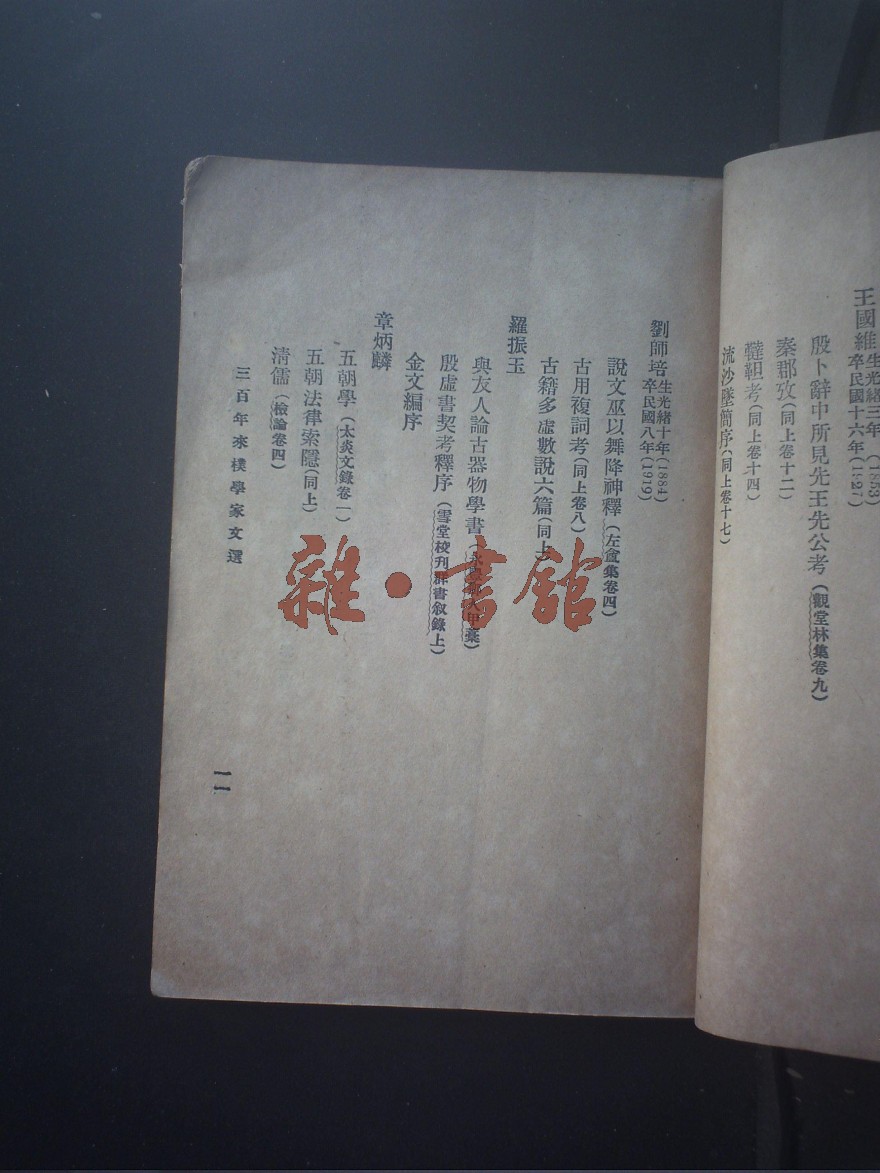 王國維
生光緒三年
卒民國十六年(1927)
殷卜辭中所見先王先公考(觀堂林集卷九)
秦郡攷(同上卷十二)
韃靼考(同上卷十四)
流沙墜簡序(同上卷十七)
劉師培
生光緒十年(1884)
卒民國八年(1919)
說文巫以舞降神釋(左盦集卷四)
古用複詞考(同上卷八)
古籍多虛數說六篇(同上)
羅振玉
與友人論古器物學書
殷虛書契考釋序(雪堂校刊群書敘錄上)
金文編序
章炳麟
五朝學(太炎文錄卷一)
五朝法律索隱(同上)
清儒(檢論卷四)
三百年來樸學家文選
一一
雜·書館